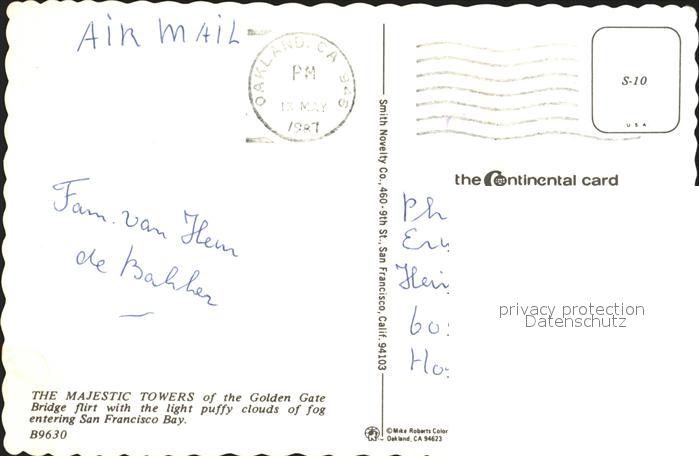 AIR MAIL
OAKLAND, CA 946
PM
13 MAY
1987
S-10
USA
Smith Novelty Co., 460-9th St., San Francisco, Calif. 94103
the Continental card
Fam. van
de Bakker
Ph
Hei
60
Ho
privacy protection
Datenschutz
THE MAJESTIC TOWERS of the Golden Gate
Bridge flirt with the light puffy clouds of fog
entering San Francisco Bay.
B9630
©Mike Roberts Color
Oakland, CA 94623